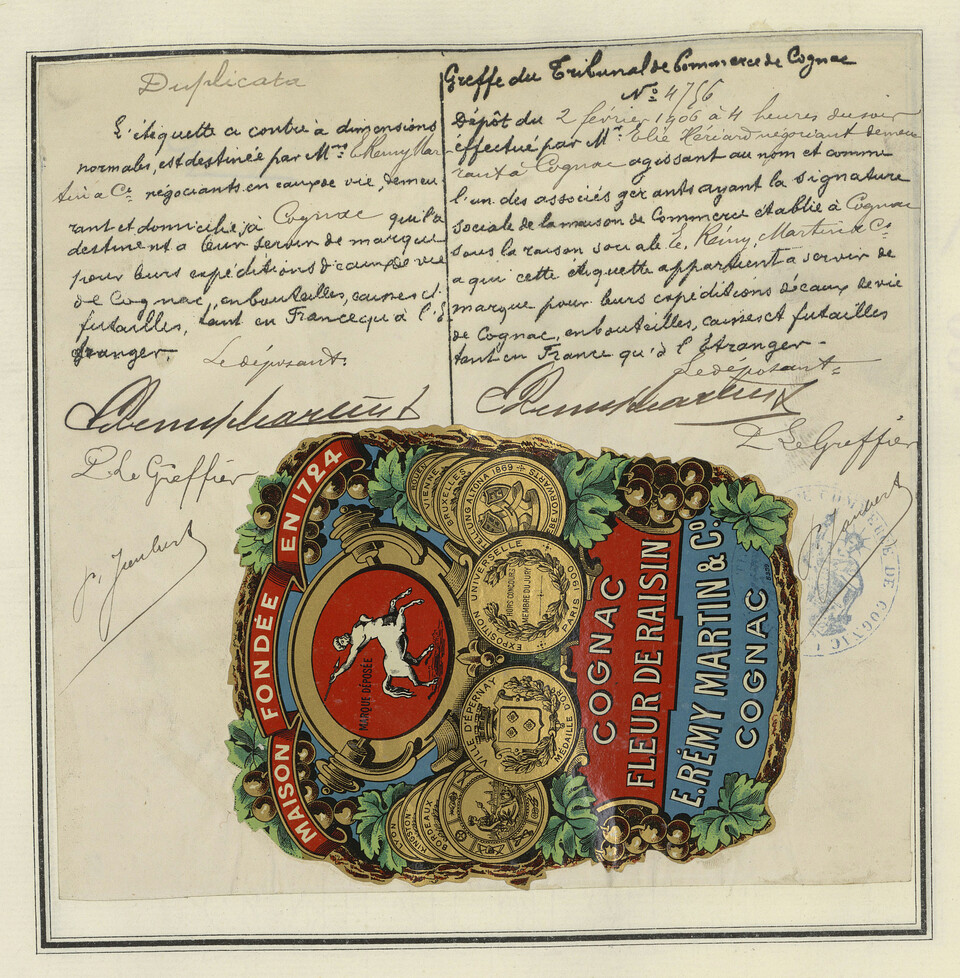 Duplicata
L'étiquette ci contre à dimensions
normales, est destinée par Mrs E. Remy Mar
tin & Co négociants en eaux de vie, demeu
rant et domiciliés à Cognac qui la
destinent à leur servir de marque
pour leurs expéditions d'eaux de vie
de Cognac, en bouteilles, caisses et
futailles, tant en France qu'à l'É
tranger.
Le déposant.
E. Remy Martin & Co
P. Le Greffier
Greffe du Tribunal de Commerce de Cognac
No 4756
Dépôt du 2 février 1906 à 4 heures du soir
effectué par Mr Elie Hériard négociant demeu
rant à Cognac agissant au nom et comme
l'un des associés gérants ayant la signature
sociale de la maison de Commerce établie à Cognac
sous la raison sociale E. Rémy, Martin & Co
a qui cette étiquette appartient à servir de
marque pour leurs expéditions d'eaux de vie
de Cognac, en bouteilles, caisses et futailles
tant en France qu'à l'Étranger.-
Le déposant=
E. Remy Martin & Co
P. Le Greffier
MAISON FONDÉE EN 1724
MARQUE DÉPOSÉE
ROUEN
VIENNE
BRUXELLES
ALTONA 1869
BEVORWARTS
EXPOSITION UNIVERSELLE PARIS 1900
HORS CONCOURS
MEMBRE DU JURY
VILLE D'ÉPERNAY
MÉDAILLE D'OR
LYON
KINGSTON
BORDEAUX
COGNAC
FLEUR DE RAISIN
E. RÉMY MARTIN & Co.
COGNAC
DE COMMERCE DE COGNAC